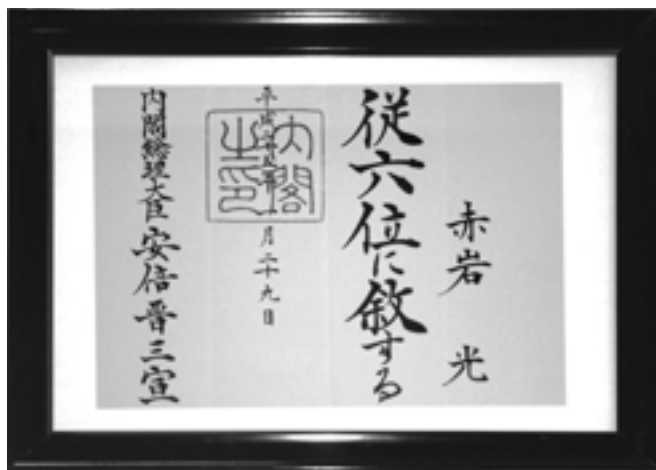 赤岩 光
従六位に叙する
平成二十五年一月二十九日
内閣之印
内閣総理大臣 安倍晋三宣